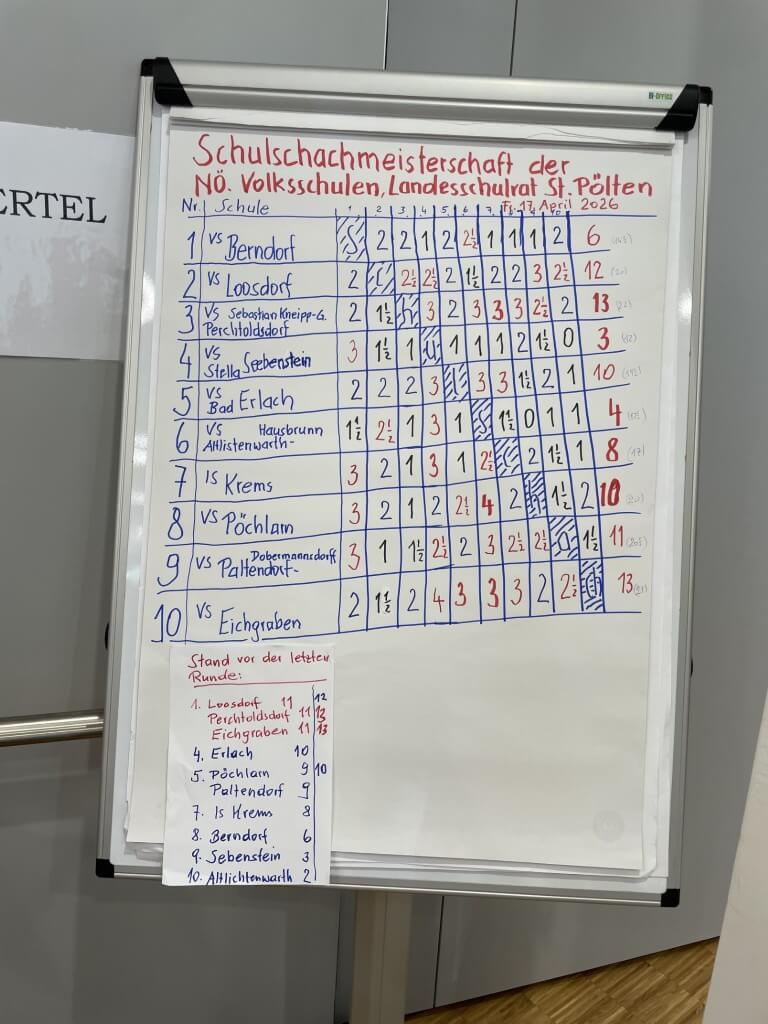 ERTEL
Schulschachmeisterschaft der
NÖ. Volksschulen, Landesschulrat St. Pölten
Fr. 17. April 2026
Nr. Schule 1 2 3 4 5 6 7
1 VS Berndorf 2 2 1 2 2½ 1 1 1 2 6
2 VS Loosdorf 2 2½ 2½ 2 1½ 2 2 3 2½ 12
3 VS Sebastian Kneipp-G. Perchtoldsdorf 2 1½ 3 2 3 3 3 2½ 2 13
4 VS Stella Seebenstein 3 1½ 1 1 1 1 2 1½ 0 3
5 VS Bad Erlach 2 2 2 3 3 3 1½ 2 1 10
6 VS Hausbrunn Altlistenwarth- 1½ 2½ 1 3 1 1½ 0 1 1 4
7 IS Krems 3 2 1 3 1 2½ 2 1½ 1 8
8 VS Pöchlarn 3 2 1 2 2½ 4 2 1½ 2 10
9 VS Dobermannsdorf Paltendorf- 3 1 1½ 2½ 2 3 2½ 2½ 1½ 11
10 VS Eichgraben 2 1½ 2 4 3 3 3 2 2½ 13
Stand vor der letzten
Runde:
1. Loosdorf 11 12
Perchtoldsdorf 11 13
Eichgraben 11 13
4. Erlach 10
5. Pöchlarn 9 10
Paltendorf 9
7. Is Krems 8
8. Berndorf 6
9. Sebenstein 3
10. Altlichtenwarth 2